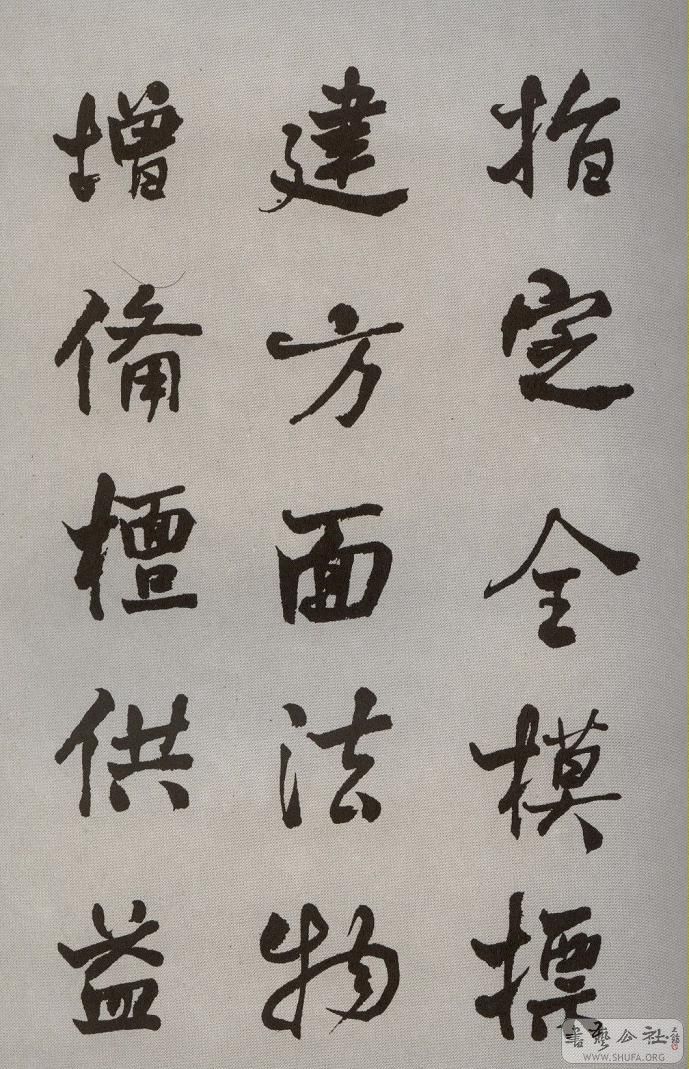 指定全模標
建方面法物
增備檀供益
書藝公社
WWW.SHUFA.ORG